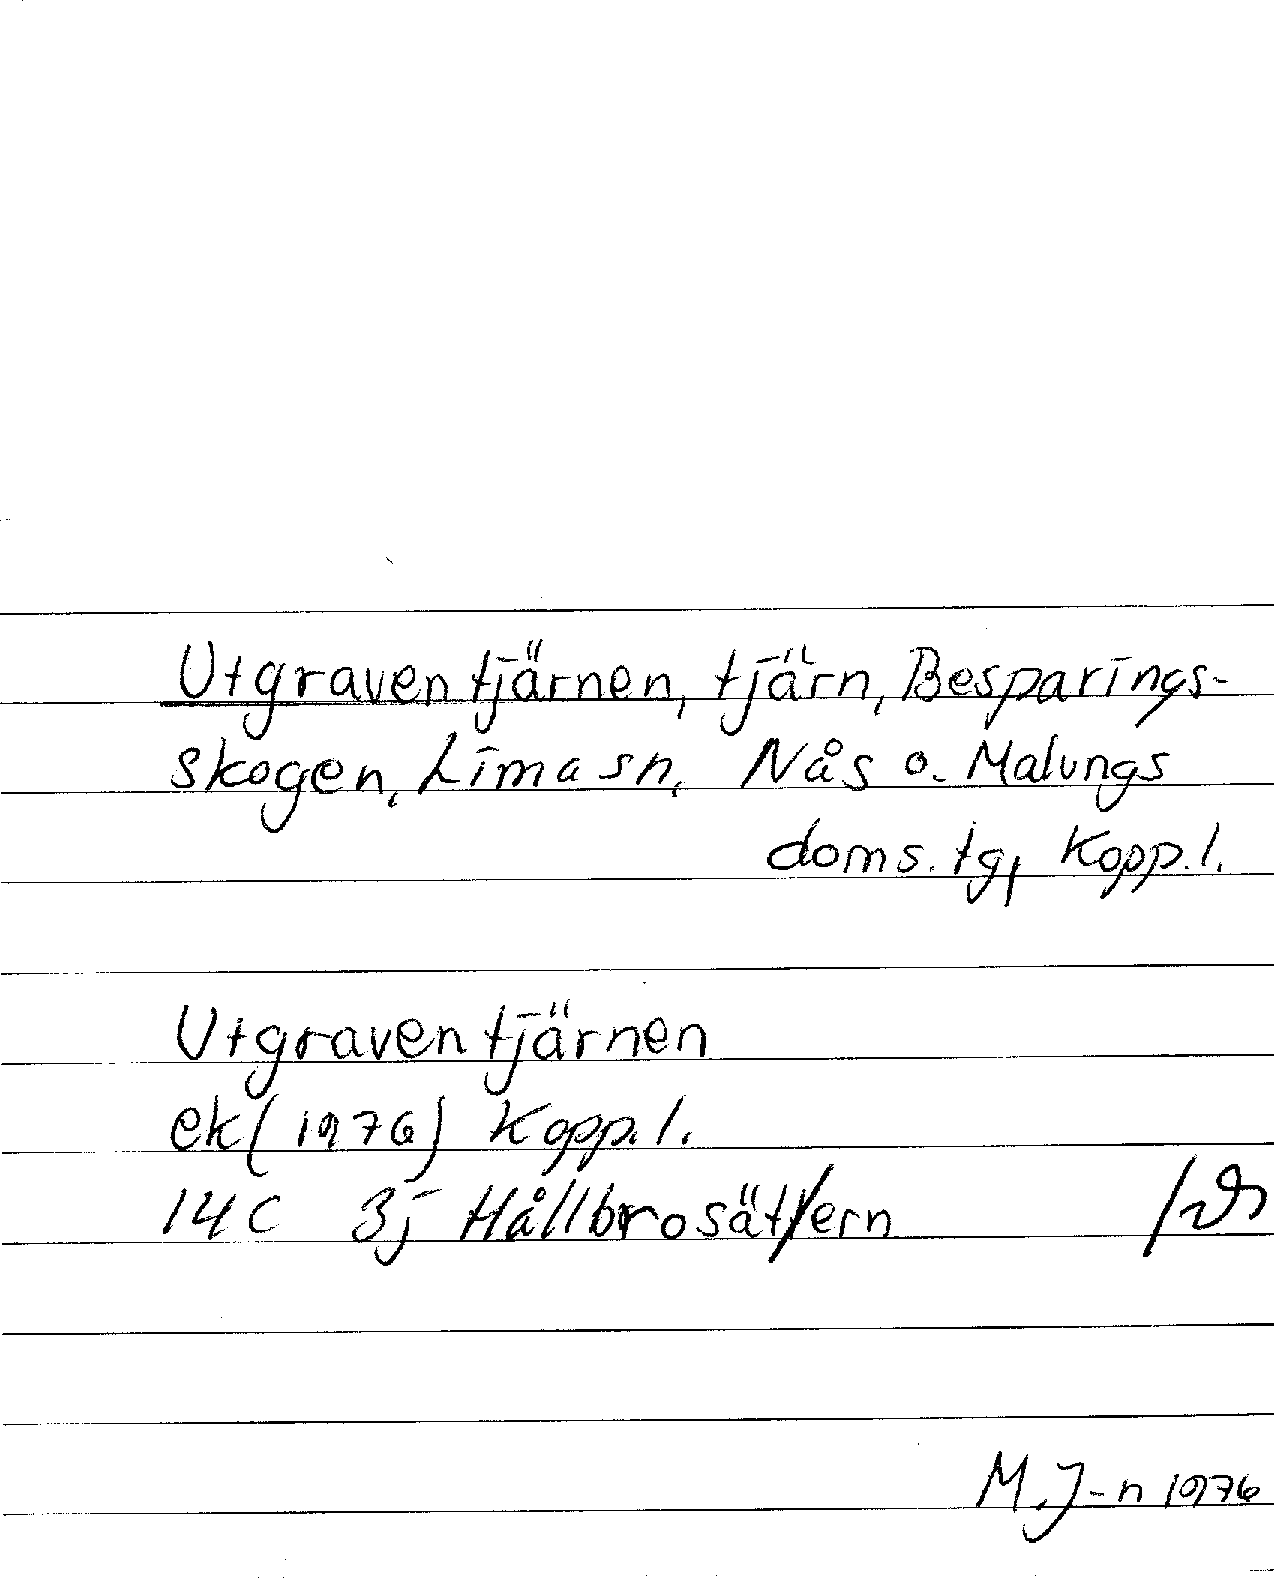 Utgraventjärnen, tjärn, Besparings-
skogen, Lima sn, Nås o. Malungs
doms. tg, Kopp.l.
Utgraventjärnen
ek (1976) Kopp.l.
14C 3j Hållbrosättern
M.J-n 1976